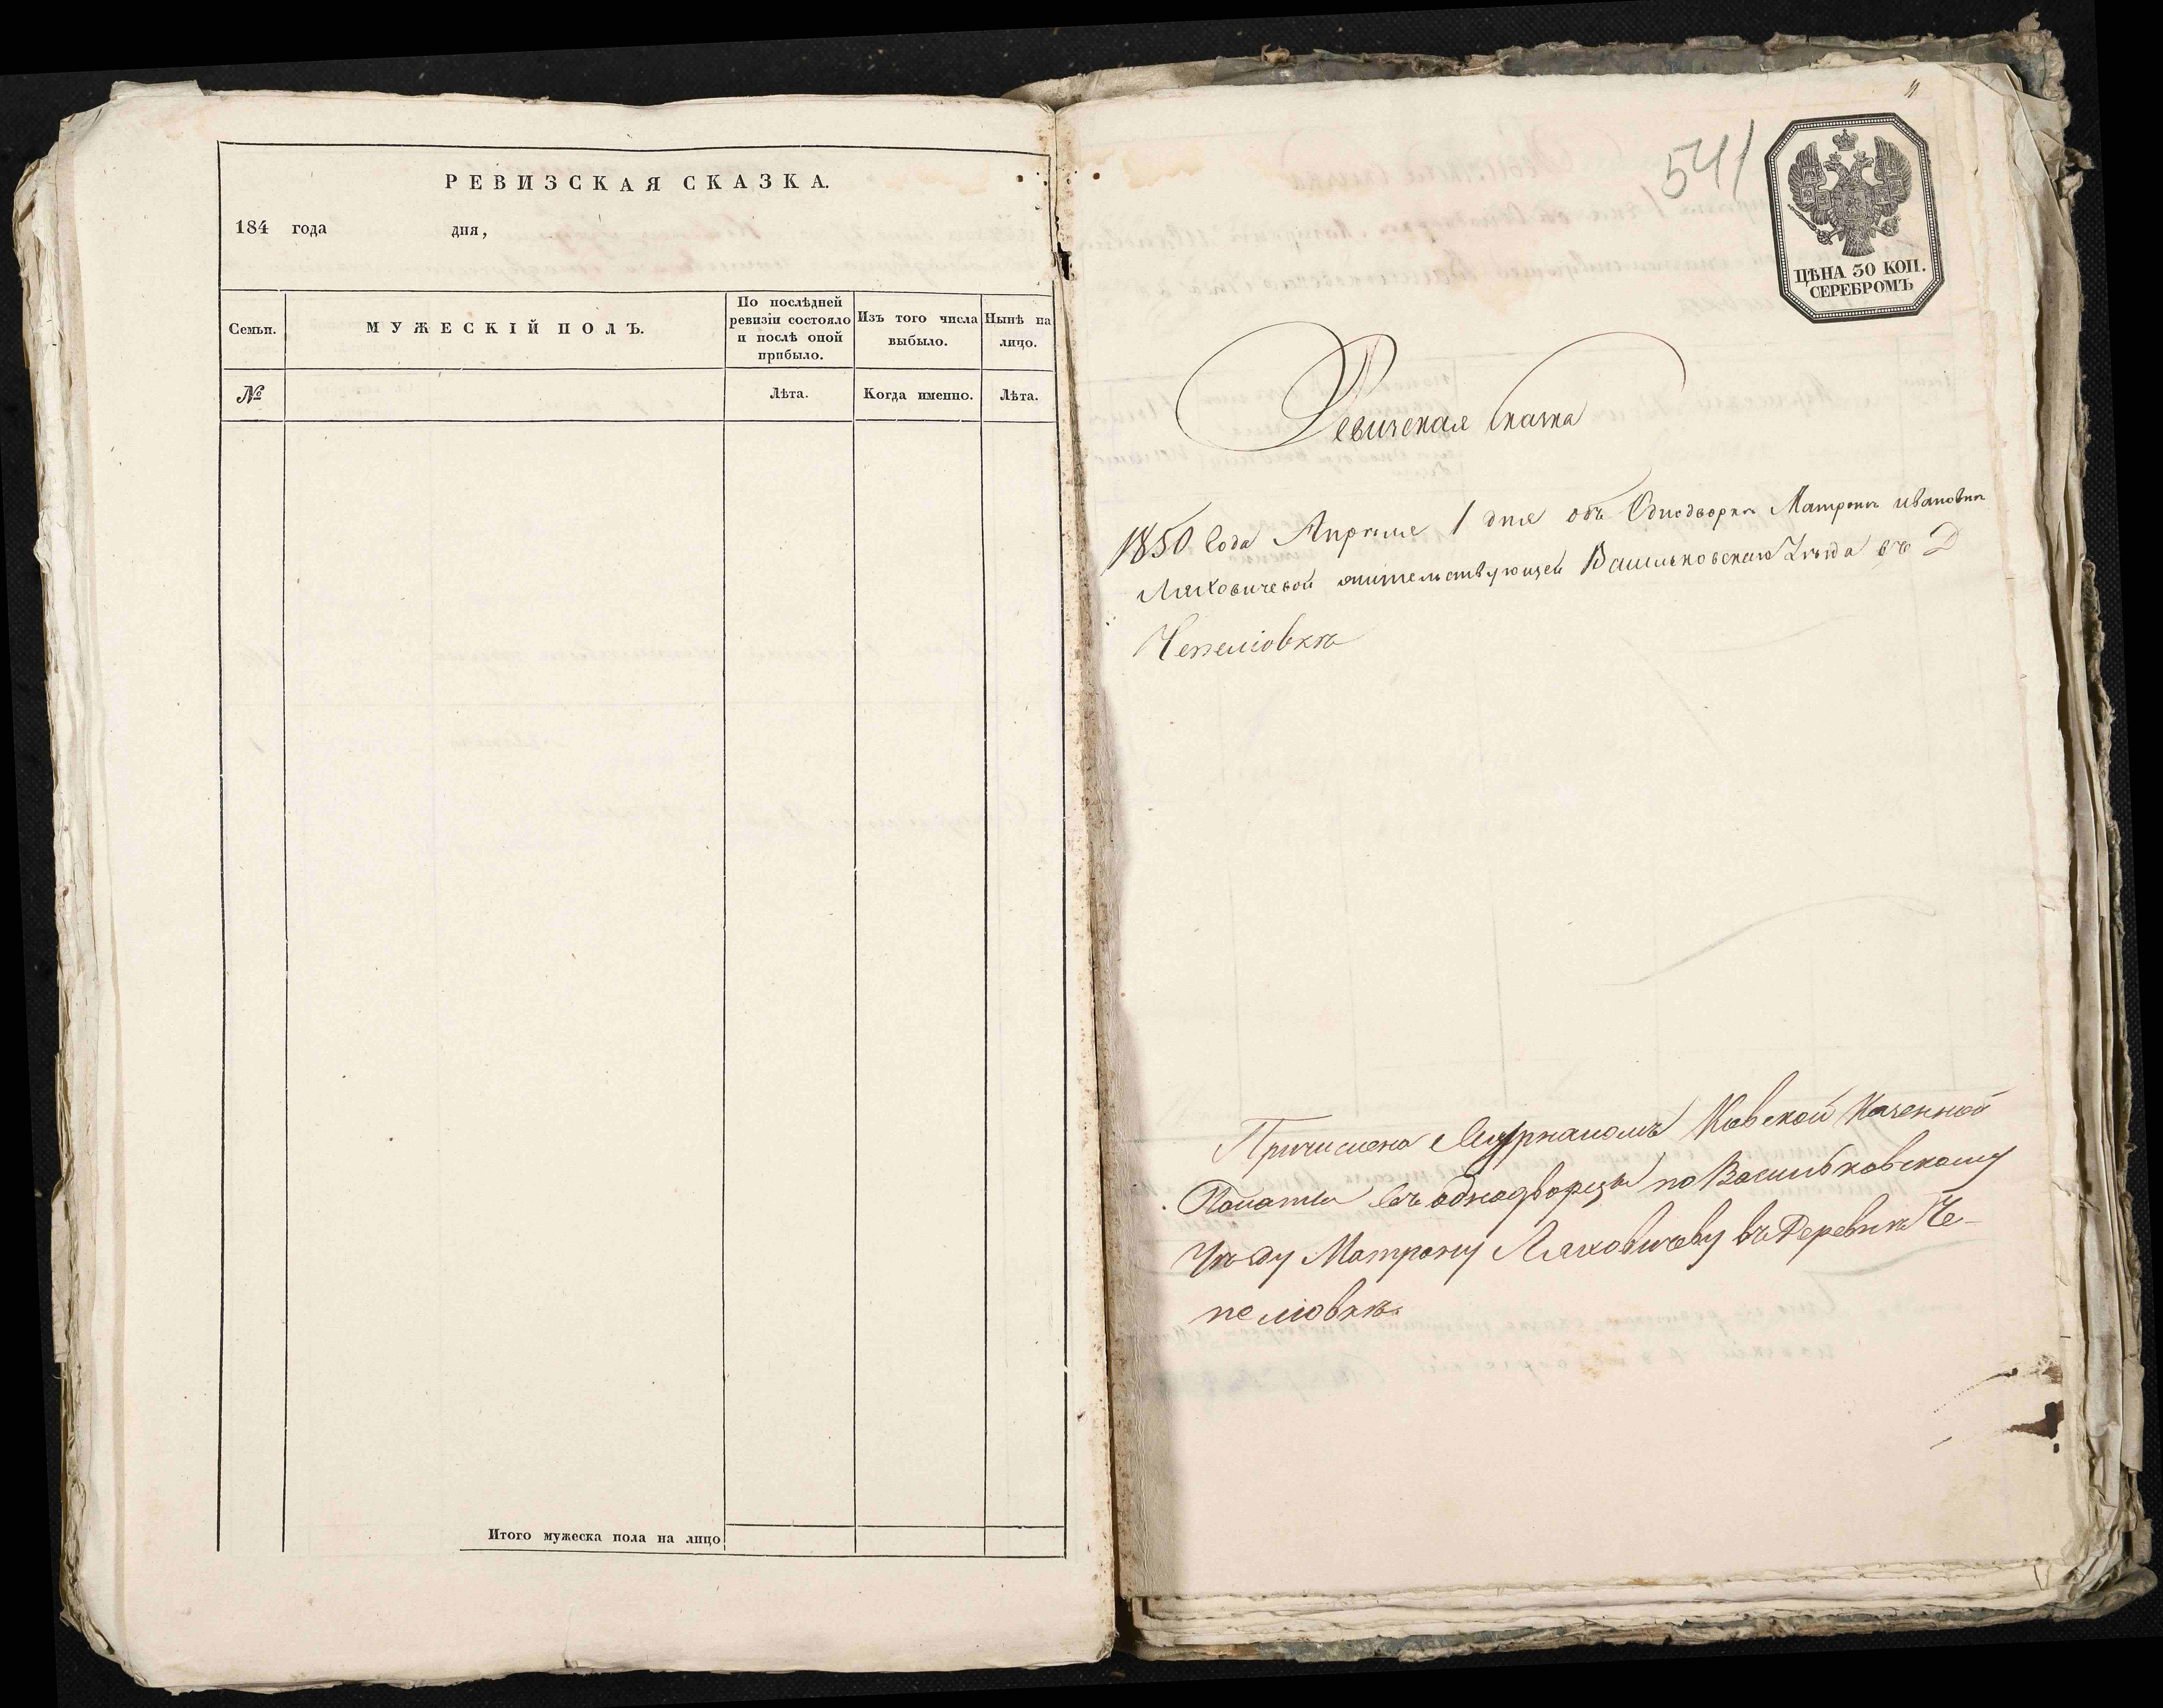 РЕВИЗСКАЯ СКАЗКА.
184 года дня,
Семьи.
МУЖЕСКІЙ ПОЛЪ.
По послѣдней
ревизіи состояло
и послѣ оной
прибыло.
Изъ того числа
выбыло.
Нынѣ на
лицо.
№
Лѣта.
Когда именно.
Лѣта.
Итого мужеска пола на лицо
541
ЦѢНА 30 КОП.
СЕРЕБРОМЪ
Ревизская Сказка
1850 Года Апреля 1 дня объ Однодворкѣ Матронѣ Ивановнѣ
Ляховичевой жительствующей Васильковскаго Уѣзда въ Д
Чепеліовкѣ
Причислена Журналомъ Кіевской Казенной
Палаты въ однодворцы по Васильковскому
Уѣзду Матрону Ляховичеву въ Деревнѣ Че-
пеліовкѣ